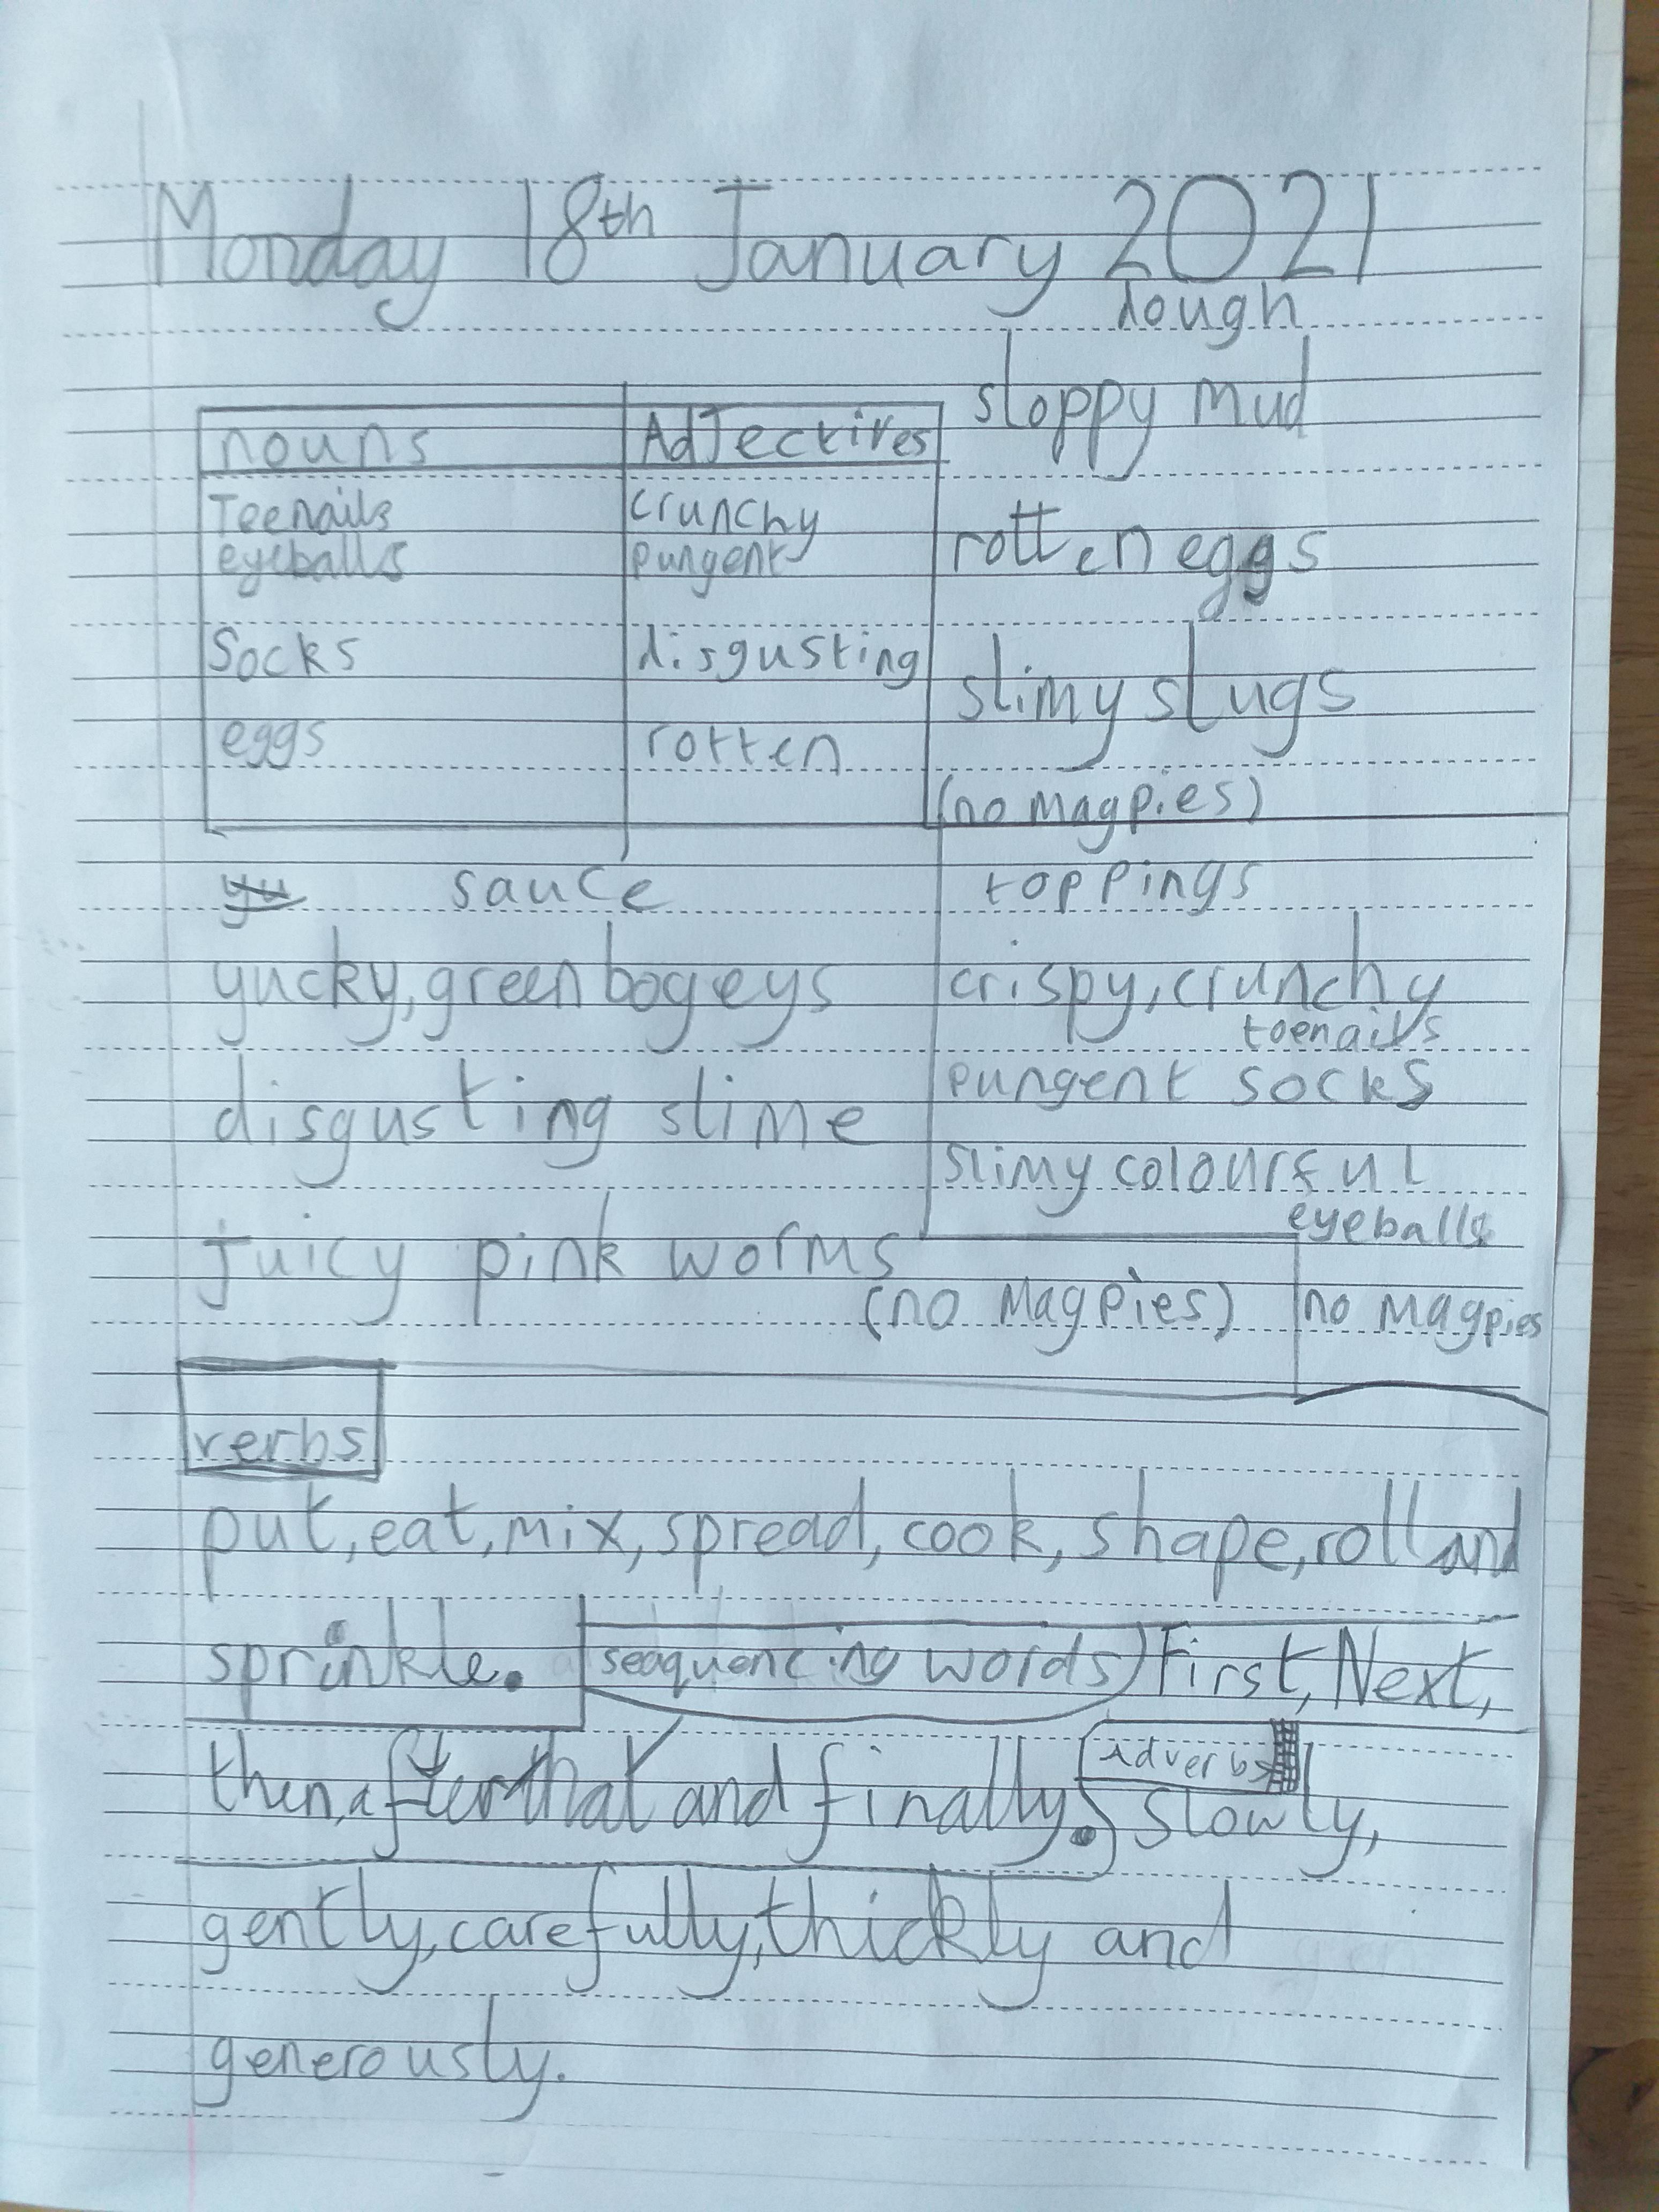 Monday 18th January 2021
dough
sloppy mud
rotten eggs
slimy slugs
(no magpies)
nouns Adjectives
Teenails crunchy
eyeballs pungent
Socks disgusting
eggs rotten
yu sauce
yucky, green bogeys
disgusting slime
juicy pink worms
(no magpies)
toppings
crispy, crunchy
toenails
pungent socks
slimy colourful
eyeballs
no magpies
verbs
put, eat, mix, spread, cook, shape, roll and
sprinkle. seaquencing words First, Next,
then, after that and finally. Adverbs slowly,
gently, carefully, thickly and
generously.